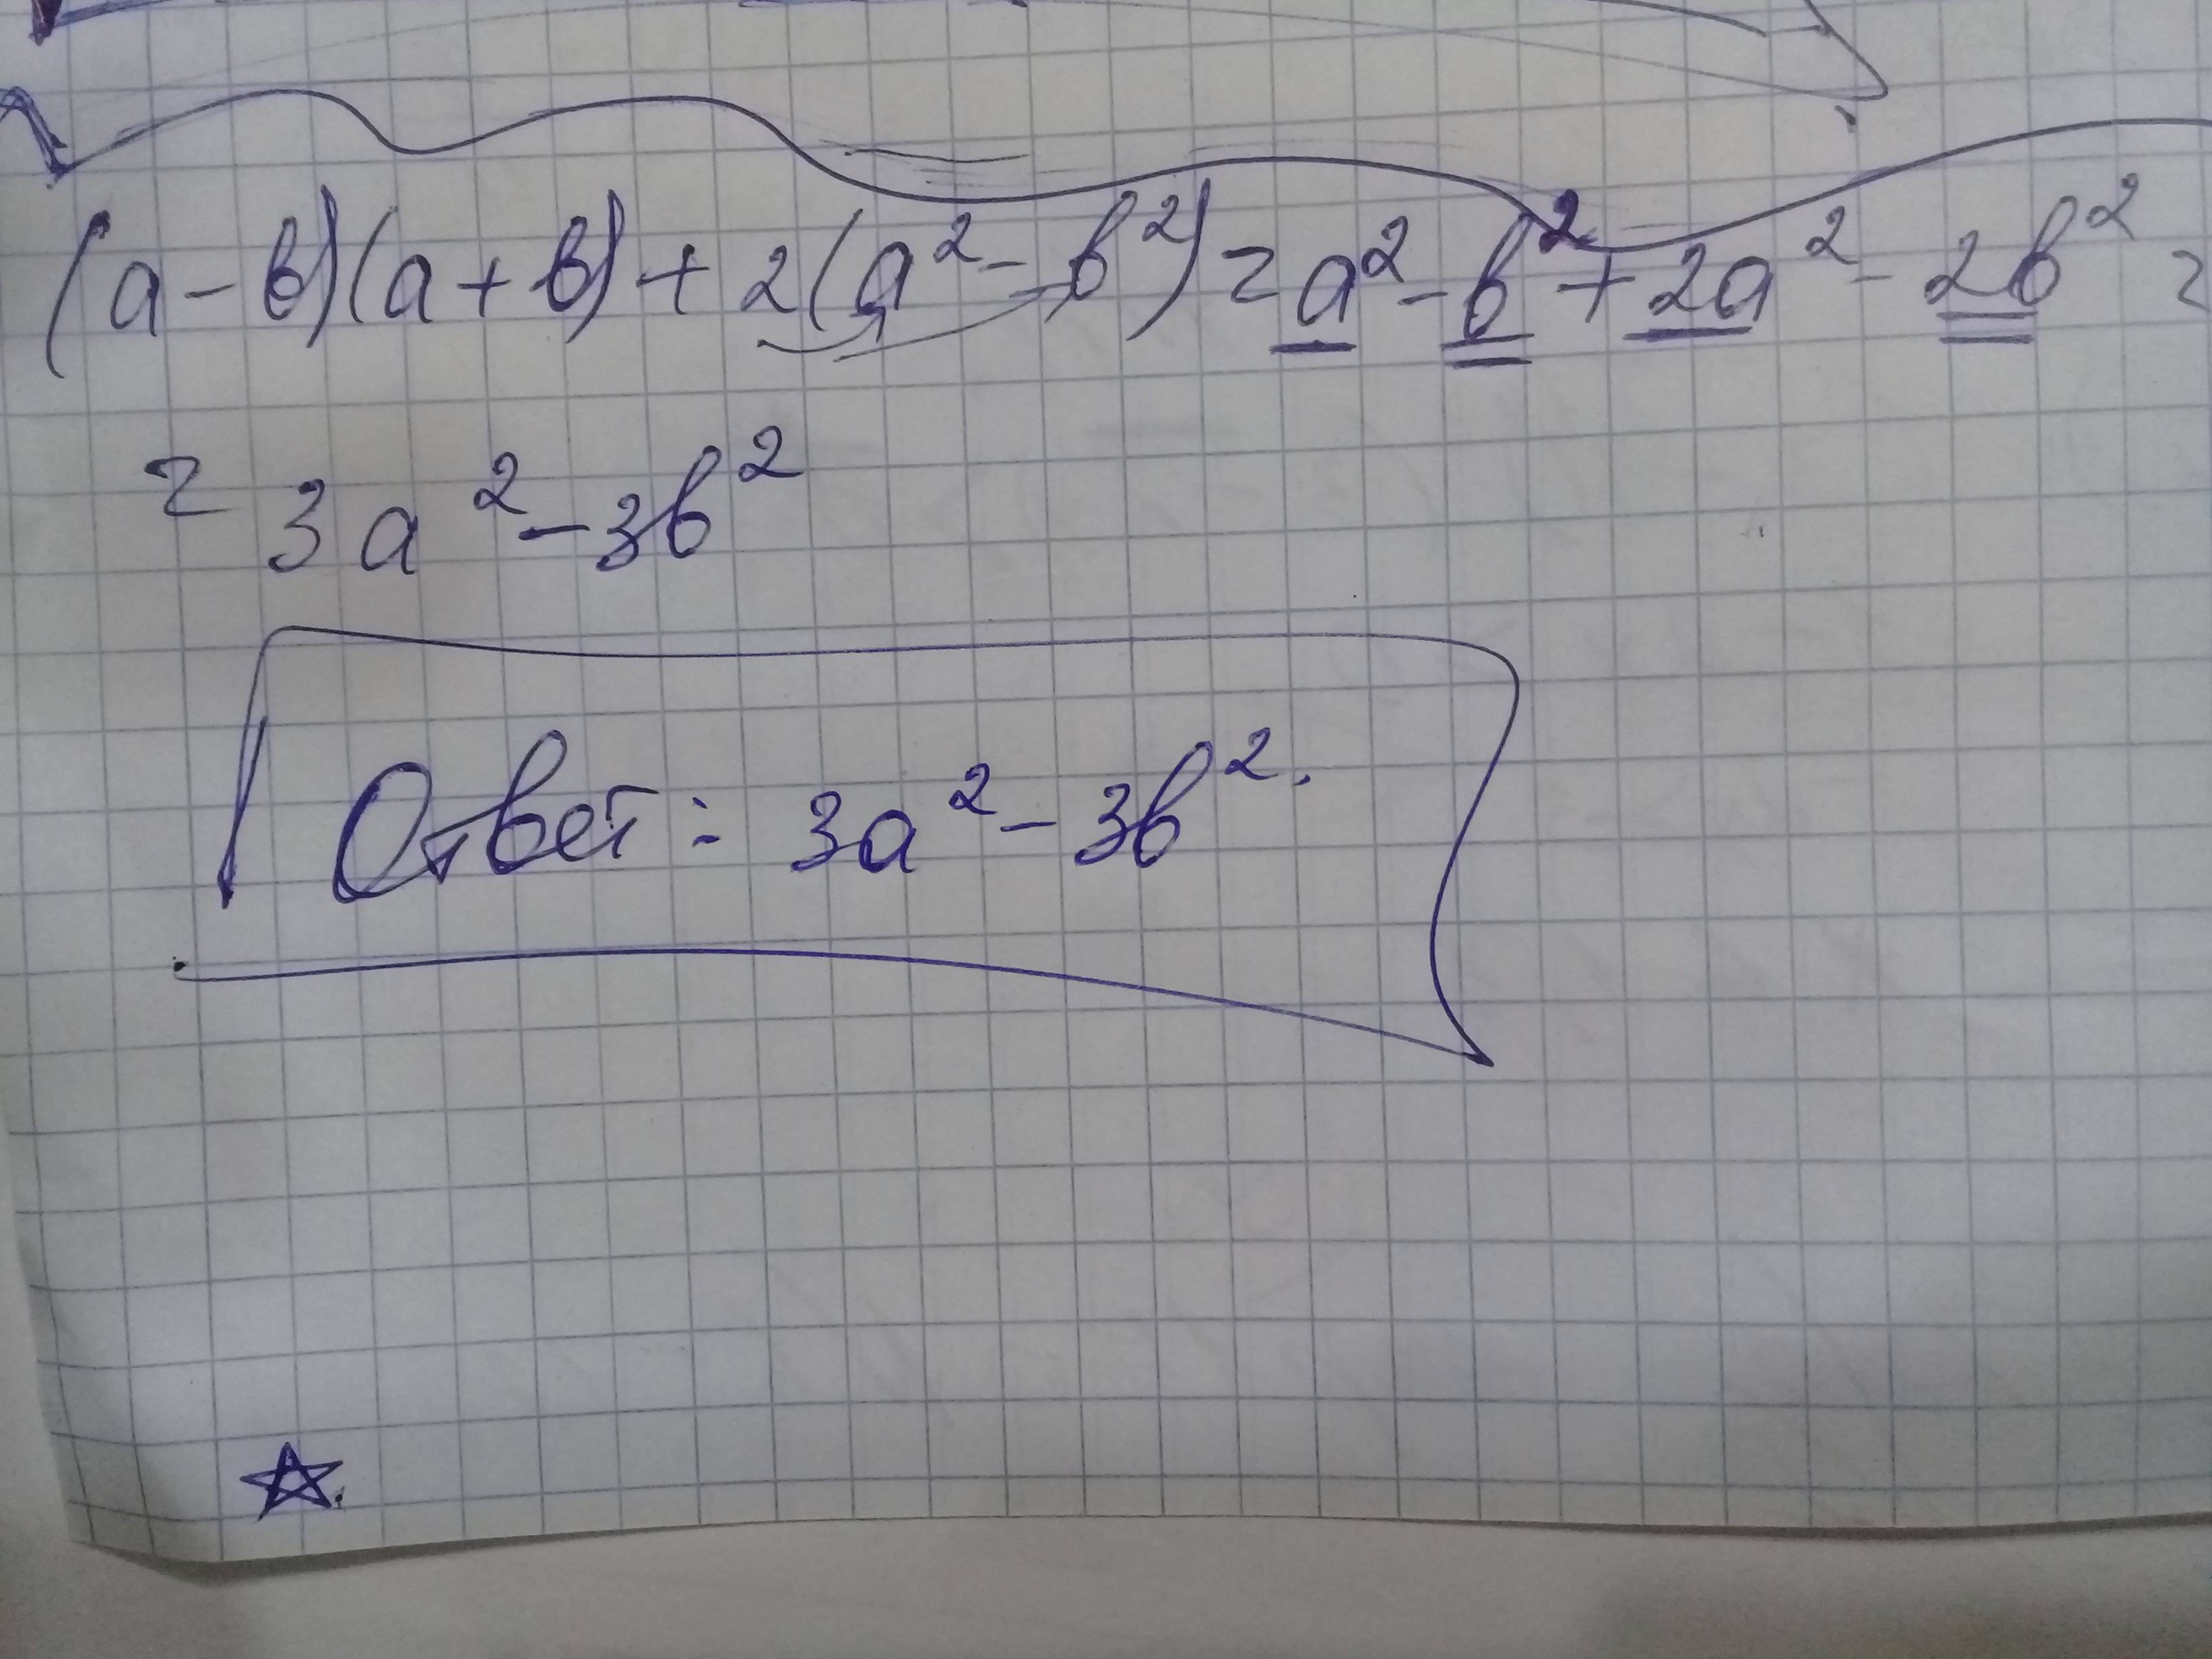 (a-b)(a+b)+2(a²-b²)=a²-b²+2a²-2b²=
=3a²-3b²
Ответ: 3a²-3b².